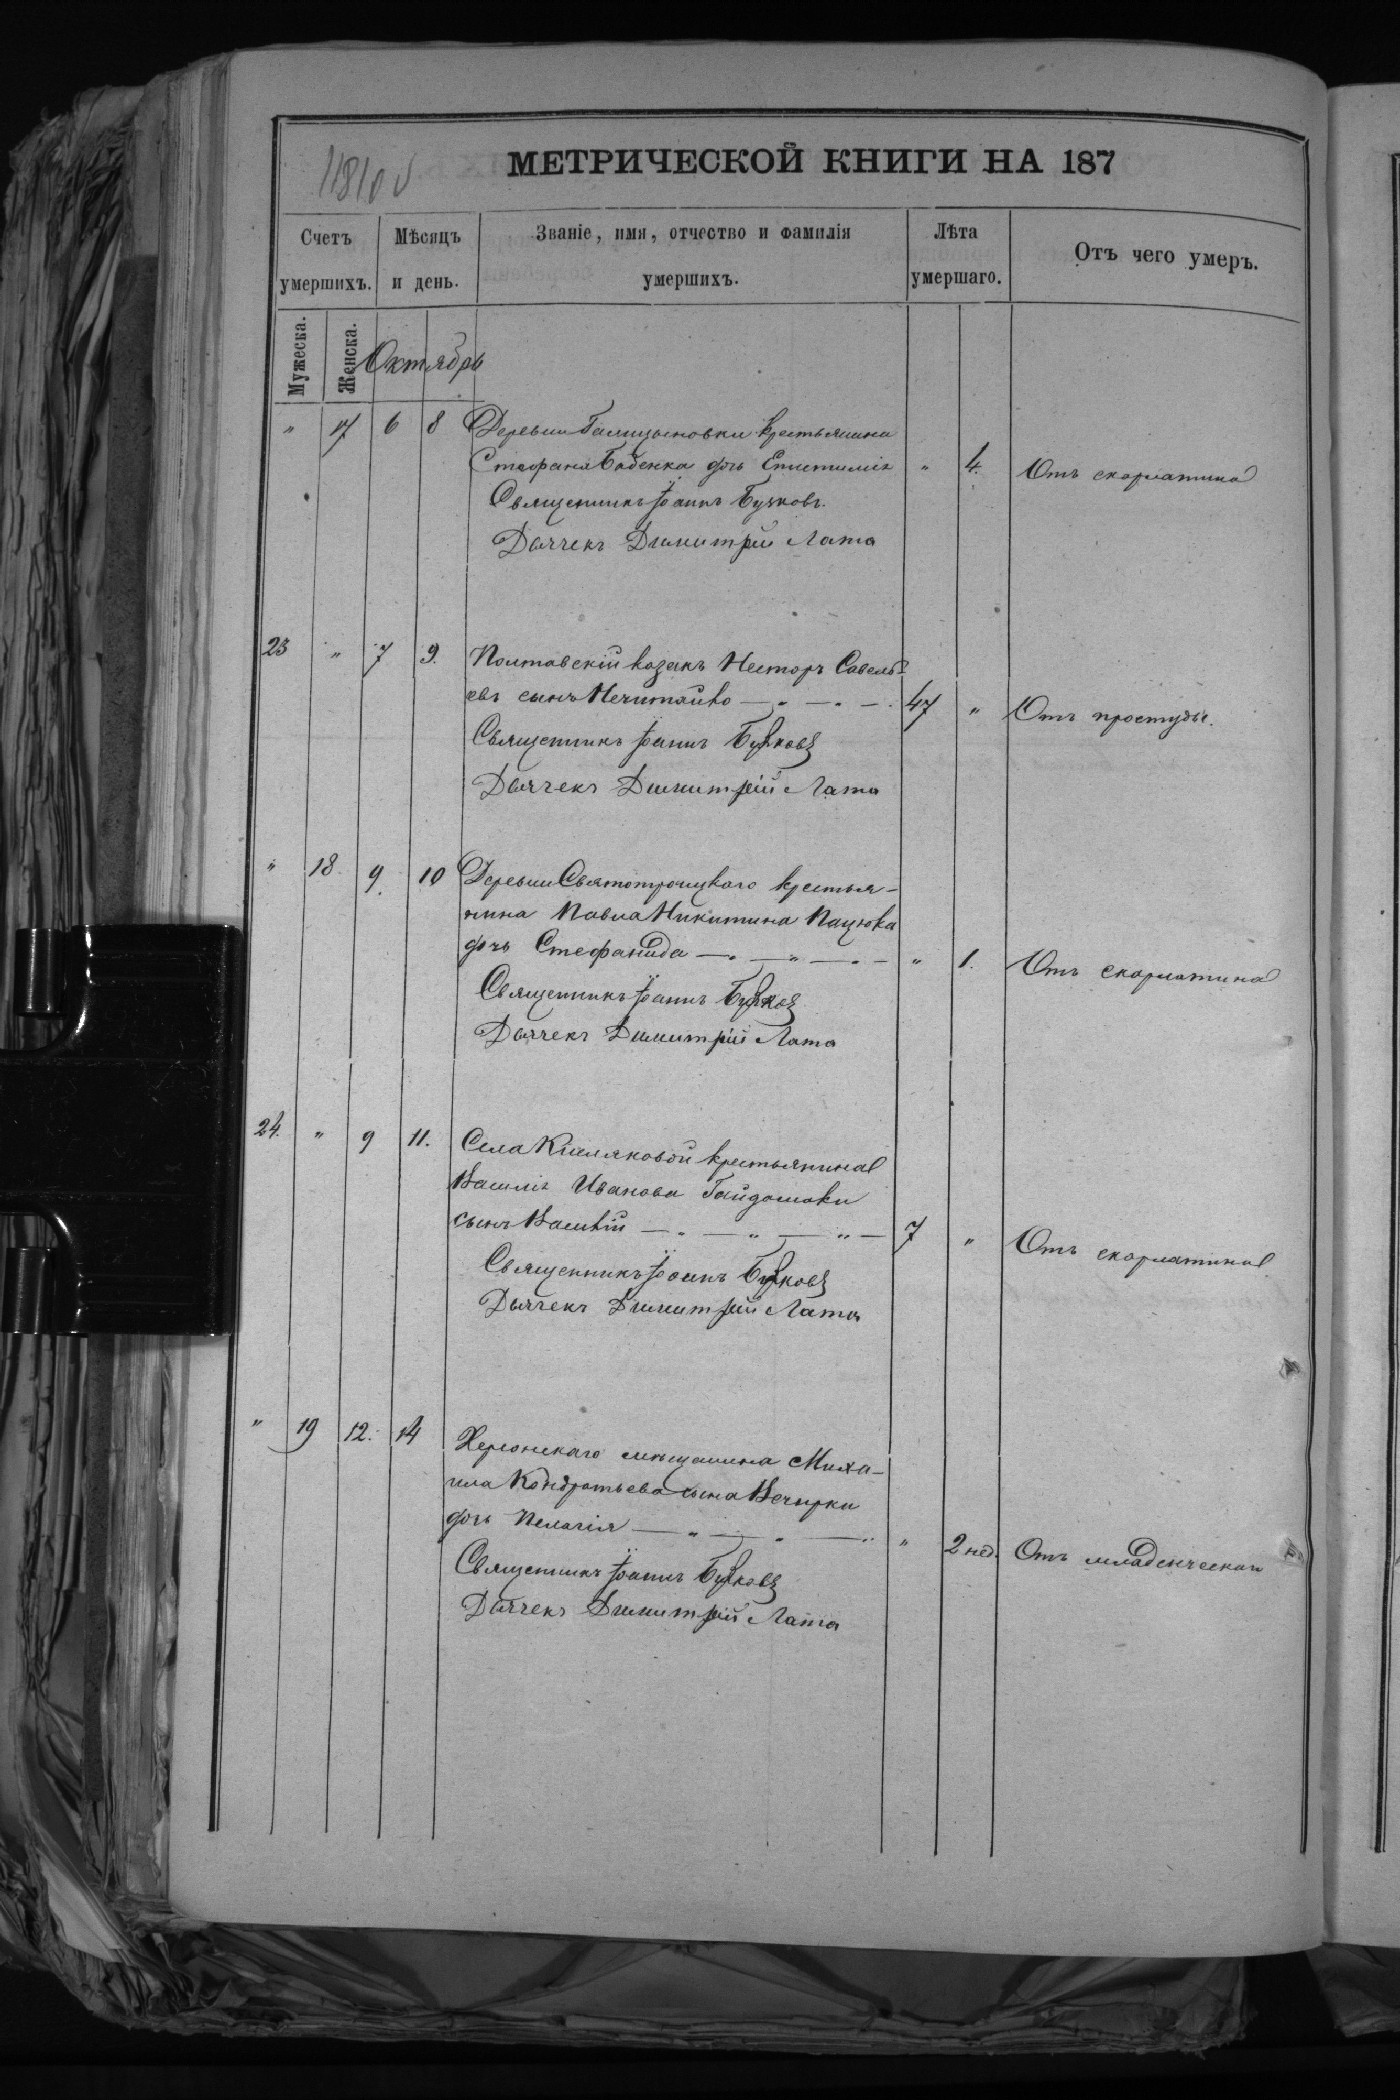 1181 об
МЕТРИЧЕСКОЙ КНИГИ НА 187
Счетъ умершихъ.
Мѣсяцъ и день.
Званіе, имя, отчество и фамилія умершихъ.
Лѣта умершаго.
Отъ чего умеръ.
Мужеска.
Женска.
Октябрь
" 17 6 8 Деревни Галицыновки крестьянина
Стефана Бабенка дочь Епистимія " 4. Отъ скорлатина
Священникъ Іоаннъ Бучковъ.
Дьячекъ Димитрій Лата
23 " 7 9. Полтавскій козакъ Несторъ Савель-
евъ сынъ Нечитайло — " — " — 47 " Отъ простуды.
Священникъ Іоаннъ Бучковъ
Дьячекъ Димитрій Лата
" 18 9. 10 Деревни Святотроицкаго крестья-
нина Павла Никитина Пацюка
дочь Стефанида — " — " — " — " 1. Отъ скорлатина
Священникъ Іоаннъ Бучковъ
Дьячекъ Димитрій Лата
24. " 9 11. Села Кисляковой крестьянина
Василія Иванова Гайдамаки
сынъ Василій — " — " — " — 7 " Отъ скорлатина
Священникъ Іоаннъ Бучковъ
Дьячекъ Димитрій Лата
" 19 12. 14 Херсонскаго мѣщанина Миха-
ила Кондратьева сына Вечирки
дочь Пелагія — " — " — " " 2 нед. Отъ младенческой
Священникъ Іоаннъ Бучковъ
Дьячекъ Димитрій Лата